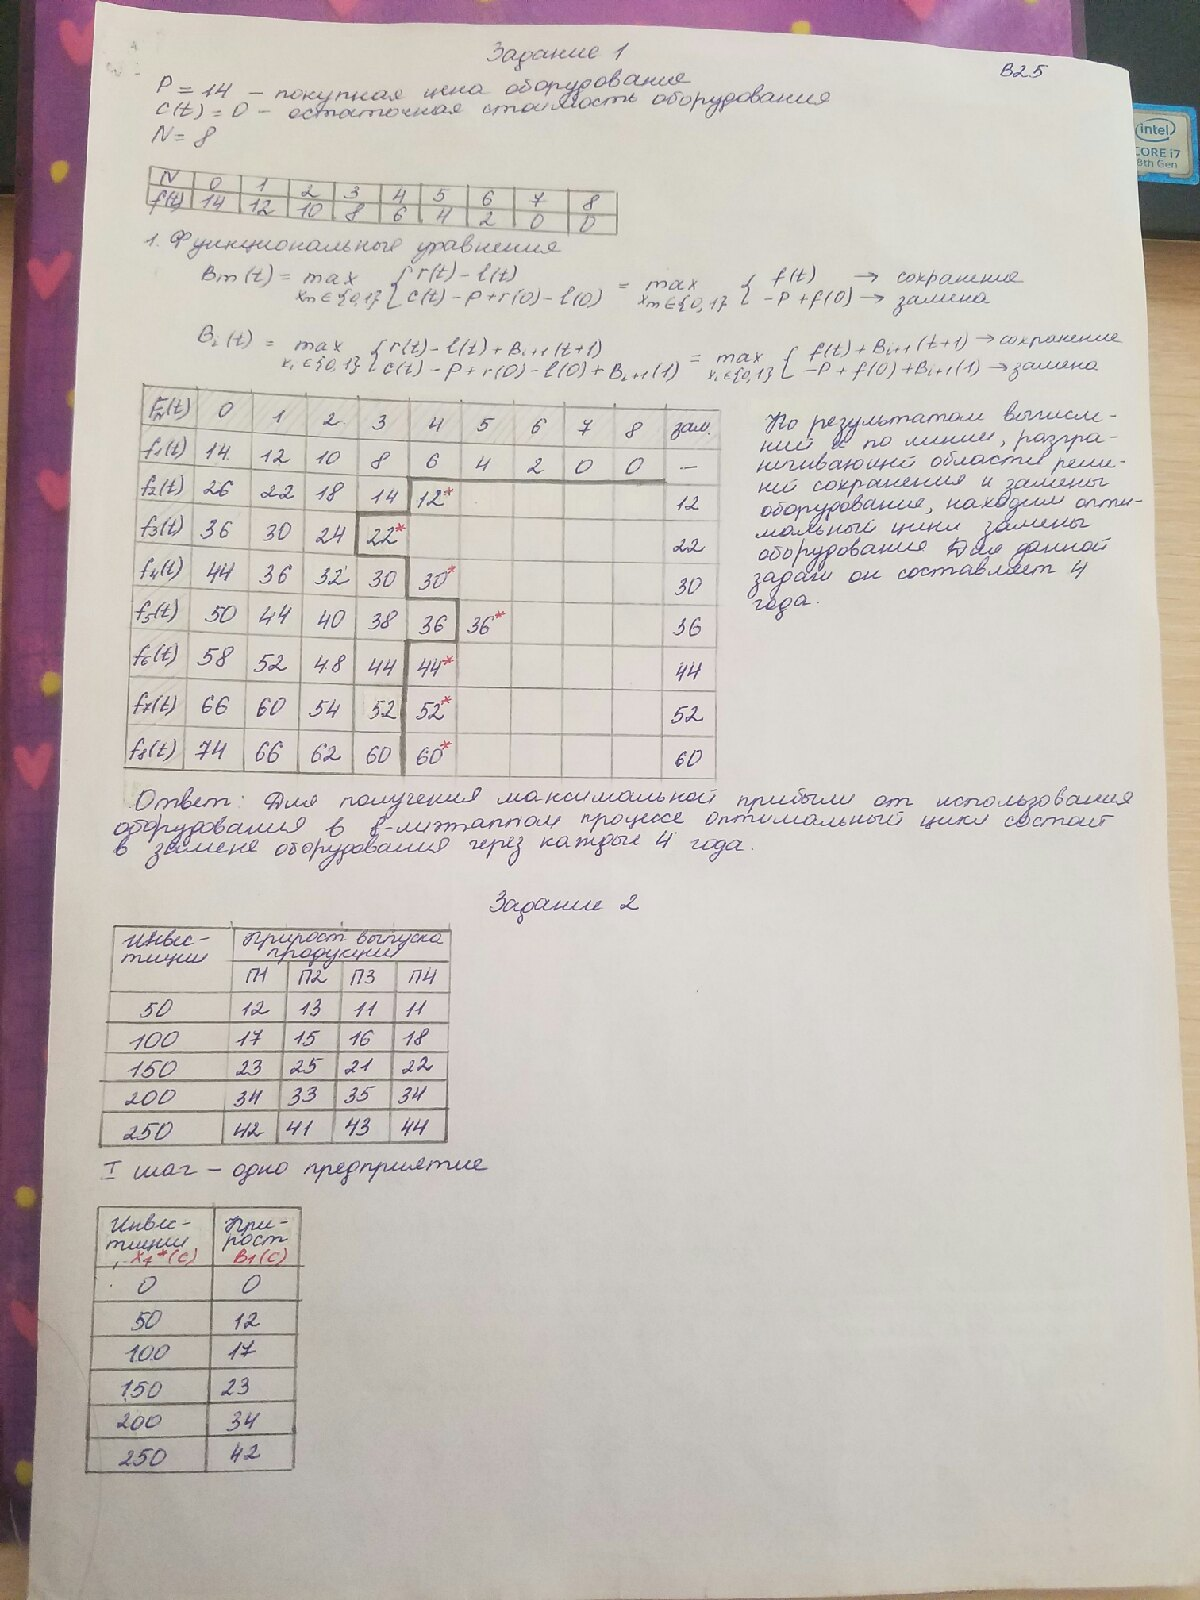 Задание 1
В25
P = 14 – покупная цена оборудования
C(t) = 0 – остаточная стоимость оборудования
N = 8
intel
CORE i7
8th Gen
N 0 1 2 3 4 5 6 7 8
f(t) 14 12 10 8 6 4 2 0 0
1. Функциональные уравнения
Bm(t) = max { r(t) – l(t) = max { f(t) → сохранение
xm∈{0,1} { c(t) – P + r(0) – l(0) xm∈{0,1} { –P + f(0) → замена
Bi(t) = max { r(t) – l(t) + Bi+1(t+1) = max { f(t) + Bi+1(t+1) → сохранение
xi∈{0,1} { c(t) – P + r(0) – l(0) + Bi+1(1) xi∈{0,1} { –P + f(0) + Bi+1(1) → замена
FN(t) 0 1 2 3 4 5 6 7 8 зам.
f1(t) 14 12 10 8 6 4 2 0 0 –
f2(t) 26 22 18 14 12* 12
f3(t) 36 30 24 22* 22
f4(t) 44 36 32 30 30* 30
f5(t) 50 44 40 38 36 36* 36
f6(t) 58 52 48 44 44* 44
f7(t) 66 60 54 52 52* 52
f8(t) 74 66 62 60 60* 60
По результатам вычисле-
ний и по линии, разгра-
ничивающей области реше-
ний сохранения и замены
оборудования, находим опти-
мальный цикл замены
оборудования. Для данной
задачи он составляет 4
года.
Ответ: Для получения максимальной прибыли от использования
оборудования в 8-миэтапном процессе оптимальный цикл состоит
в замене оборудования через каждые 4 года.
Задание 2
Инвес-
тиции
Прирост выпуска
продукции
П1 П2 П3 П4
50 12 13 11 11
100 17 15 16 18
150 23 25 21 22
200 34 33 35 34
250 42 41 43 44
I шаг – одно предприятие
Инвес-
тиции
x1*(c)
При-
рост
B1(c)
0 0
50 12
100 17
150 23
200 34
250 42